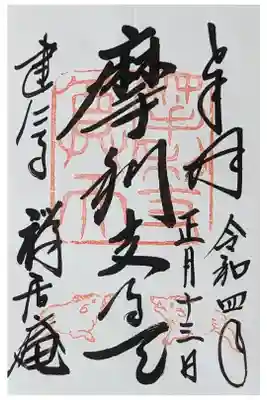 奉拝
令和四年
正月十三日
摩利支尊天
建仁寺
禅居庵